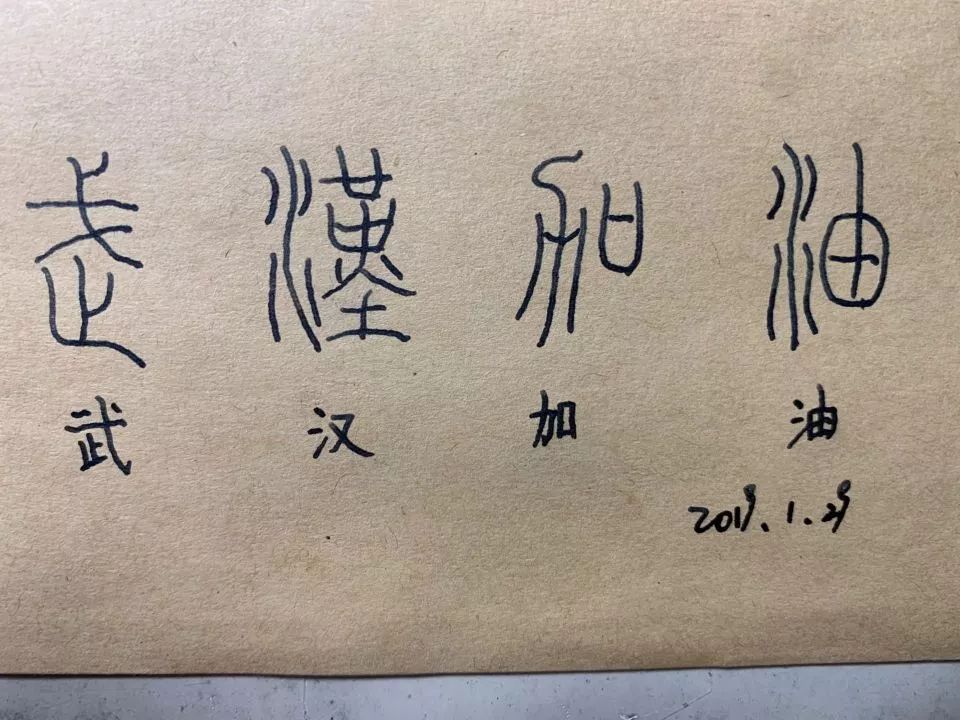 武漢加油
武汉加油
2019.1.29